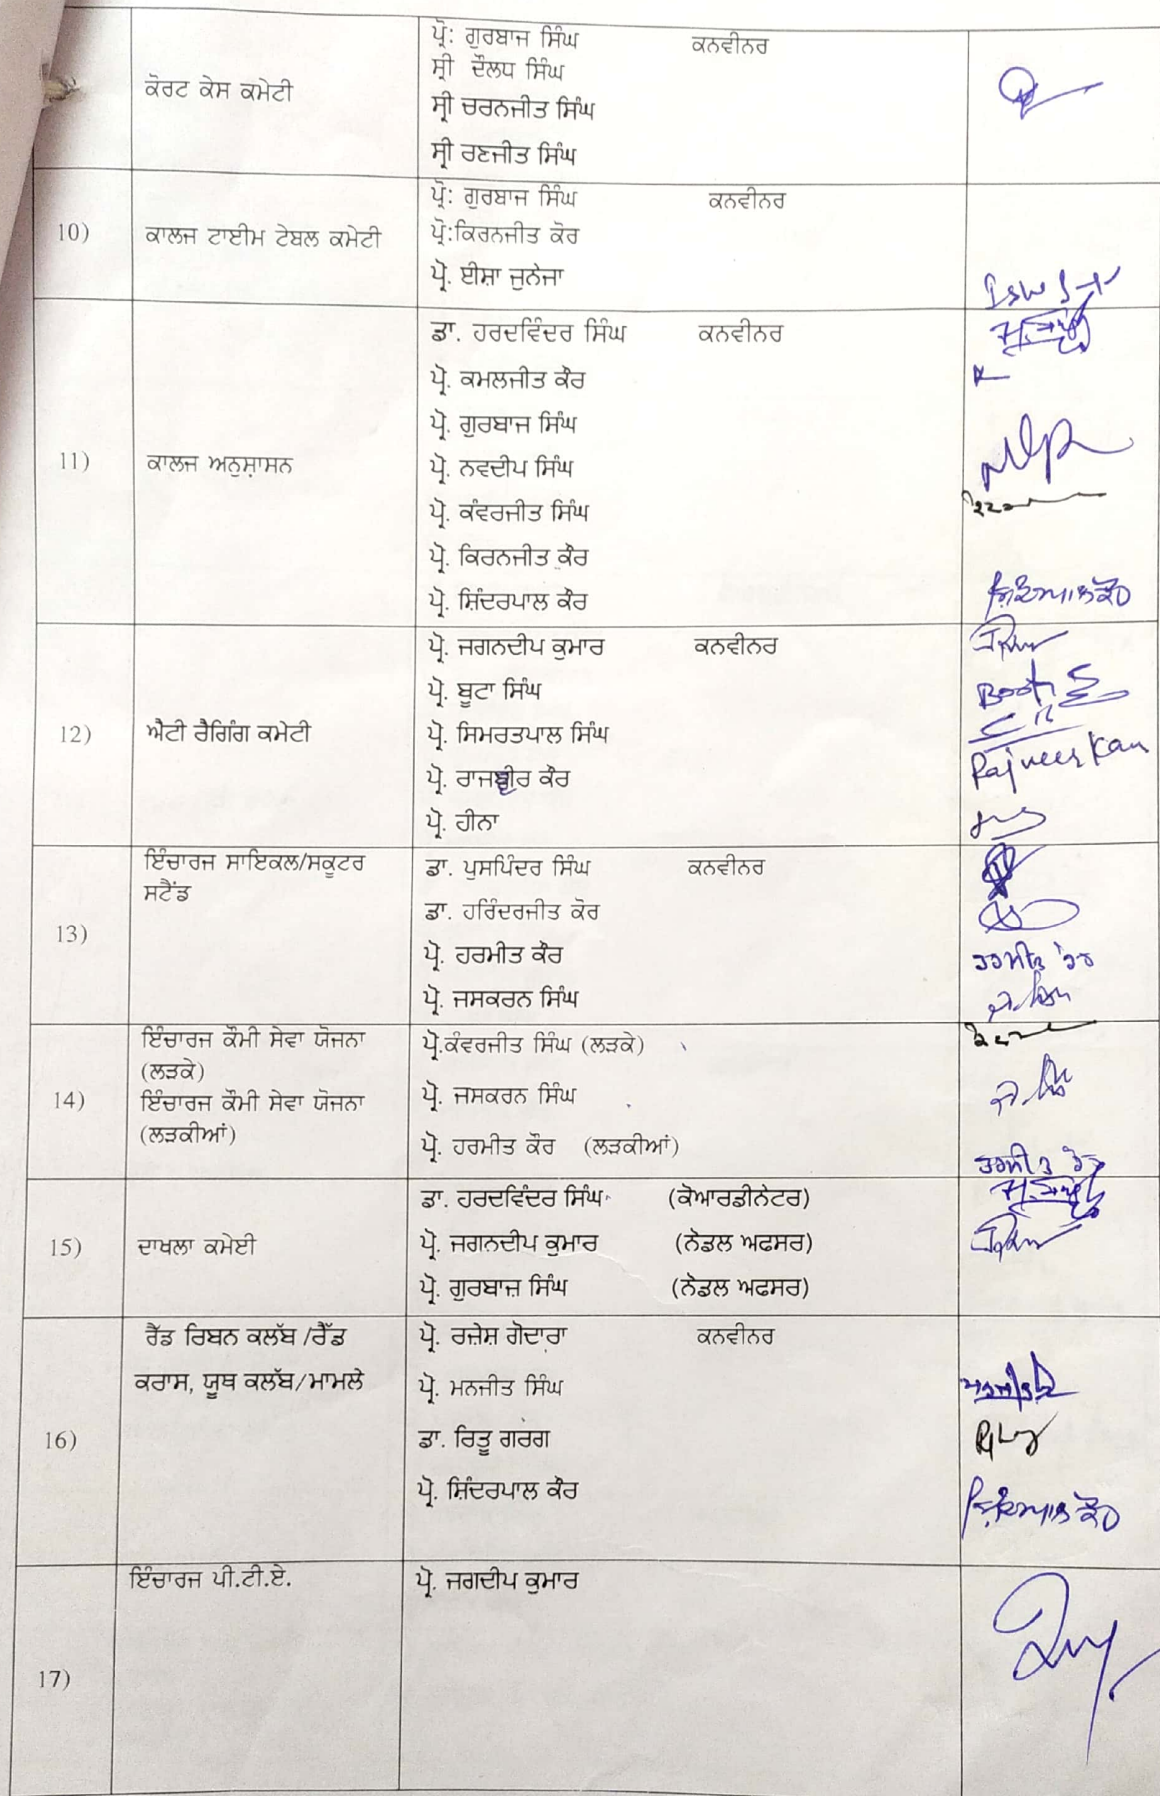 ਕੋਰਟ ਕੇਸ ਕਮੇਟੀ
ਪ੍ਰੋ: ਗੁਰਬਾਜ ਸਿੰਘ ਕਨਵੀਨਰ
ਸ੍ਰੀ ਦੌਲਧ ਸਿੰਘ
ਸ੍ਰੀ ਚਰਨਜੀਤ ਸਿੰਘ
ਸ੍ਰੀ ਰਣਜੀਤ ਸਿੰਘ
10)
ਕਾਲਜ ਟਾਈਮ ਟੇਬਲ ਕਮੇਟੀ
ਪ੍ਰੋ: ਗੁਰਬਾਜ ਸਿੰਘ ਕਨਵੀਨਰ
ਪ੍ਰੋ:ਕਿਰਨਜੀਤ ਕੋਰ
ਪ੍ਰੋ. ਈਸ਼ਾ ਜੁਨੇਜਾ
11)
ਕਾਲਜ ਅਨੁਸ਼ਾਸਨ
ਡਾ. ਹਰਦਵਿੰਦਰ ਸਿੰਘ ਕਨਵੀਨਰ
ਪ੍ਰੋ. ਕਮਲਜੀਤ ਕੌਰ
ਪ੍ਰੋ. ਗੁਰਬਾਜ ਸਿੰਘ
ਪ੍ਰੋ. ਨਵਦੀਪ ਸਿੰਘ
ਪ੍ਰੋ. ਕੰਵਰਜੀਤ ਸਿੰਘ
ਪ੍ਰੋ. ਕਿਰਨਜੀਤ ਕੌਰ
ਪ੍ਰੋ. ਸ਼ਿੰਦਰਪਾਲ ਕੌਰ
12)
ਐਟੀ ਰੈਗਿੰਗ ਕਮੇਟੀ
ਪ੍ਰੋ. ਜਗਨਦੀਪ ਕੁਮਾਰ ਕਨਵੀਨਰ
ਪ੍ਰੋ. ਬੂਟਾ ਸਿੰਘ
ਪ੍ਰੋ. ਸਿਮਰਤਪਾਲ ਸਿੰਘ
ਪ੍ਰੋ. ਰਾਜਵੀਰ ਕੌਰ
Rajveer Kaur
ਪ੍ਰੋ. ਹੀਨਾ
13)
ਇੰਚਾਰਜ ਸਾਇਕਲ/ਸਕੂਟਰ
ਸਟੈਂਡ
ਡਾ. ਪੁਸਪਿੰਦਰ ਸਿੰਘ ਕਨਵੀਨਰ
ਡਾ. ਹਰਿੰਦਰਜੀਤ ਕੋਰ
ਪ੍ਰੋ. ਹਰਮੀਤ ਕੌਰ
ਪ੍ਰੋ. ਜਸਕਰਨ ਸਿੰਘ
14)
ਇੰਚਾਰਜ ਕੌਮੀ ਸੇਵਾ ਯੋਜਨਾ
(ਲੜਕੇ)
ਇੰਚਾਰਜ ਕੌਮੀ ਸੇਵਾ ਯੋਜਨਾ
(ਲੜਕੀਆਂ)
ਪ੍ਰੋ.ਕੰਵਰਜੀਤ ਸਿੰਘ (ਲੜਕੇ)
ਪ੍ਰੋ. ਜਸਕਰਨ ਸਿੰਘ
ਪ੍ਰੋ. ਹਰਮੀਤ ਕੌਰ (ਲੜਕੀਆਂ)
15)
ਦਾਖਲਾ ਕਮੇਈ
ਡਾ. ਹਰਦਵਿੰਦਰ ਸਿੰਘ (ਕੋਆਰਡੀਨੇਟਰ)
ਪ੍ਰੋ. ਜਗਨਦੀਪ ਕੁਮਾਰ (ਨੋਡਲ ਅਫਸਰ)
ਪ੍ਰੋ. ਗੁਰਬਾਜ਼ ਸਿੰਘ (ਨੋਡਲ ਅਫਸਰ)
16)
ਰੈੱਡ ਰਿਬਨ ਕਲੱਬ /ਰੈੱਡ
ਕਰਾਸ, ਯੂਥ ਕਲੱਬ/ਮਾਮਲੇ
ਪ੍ਰੋ. ਰਜ਼ੇਸ਼ ਗੋਦਾਰਾ ਕਨਵੀਨਰ
ਪ੍ਰੋ. ਮਨਜੀਤ ਸਿੰਘ
ਡਾ. ਰਿਤੂ ਗਰਗ
ਪ੍ਰੋ. ਸ਼ਿੰਦਰਪਾਲ ਕੌਰ
17)
ਇੰਚਾਰਜ ਪੀ.ਟੀ.ਏ.
ਪ੍ਰੋ. ਜਗਦੀਪ ਕੁਮਾਰ